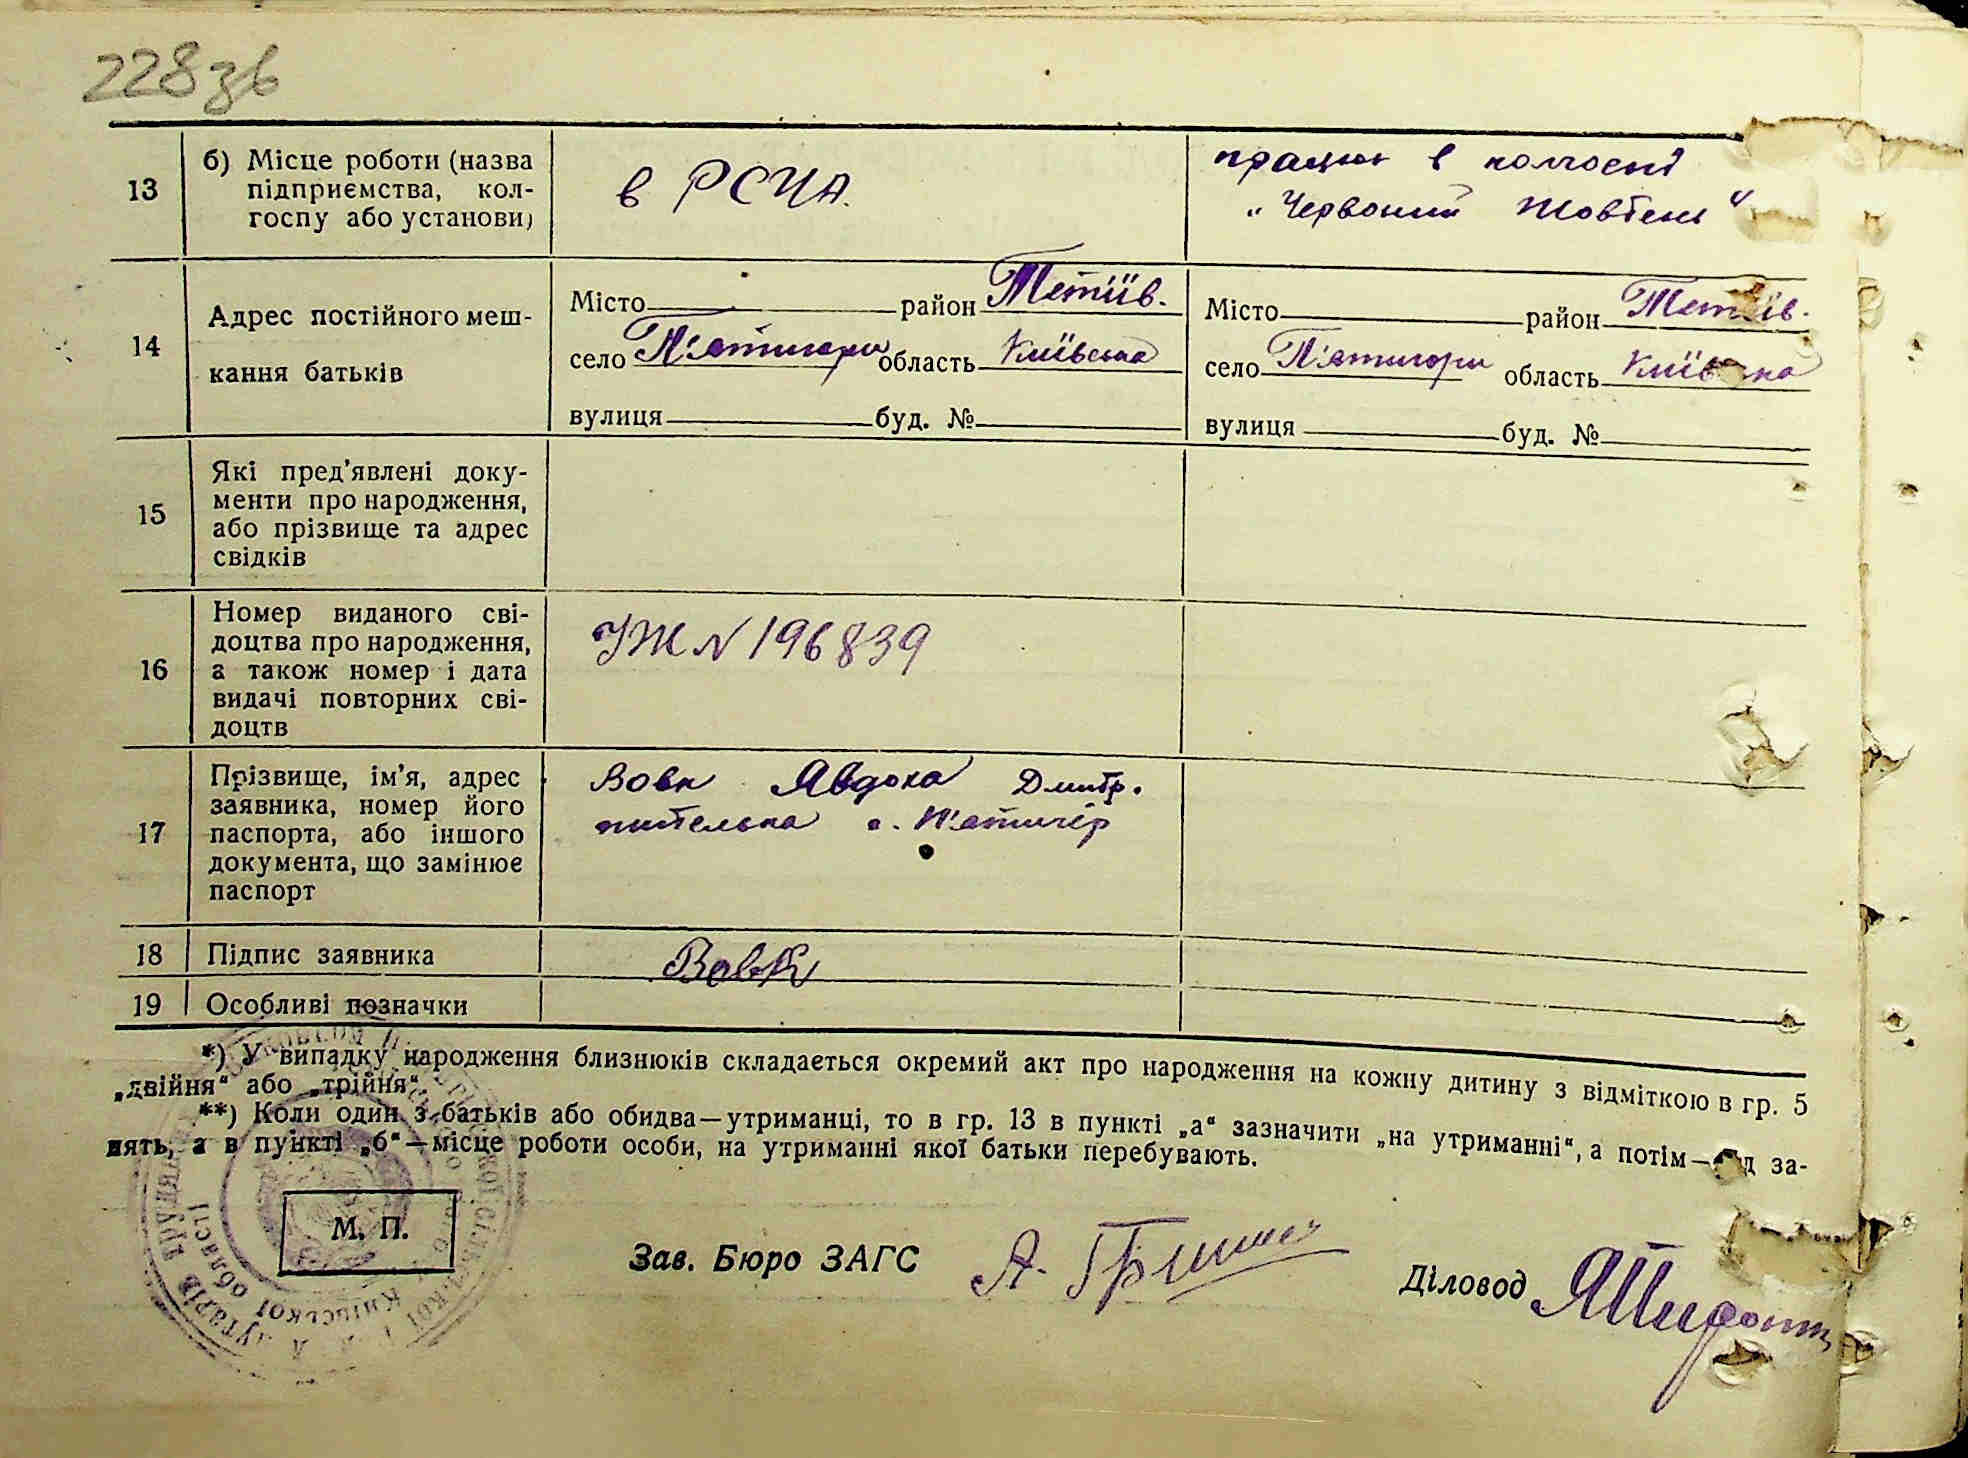 228зв
13
б) Місце роботи (назва
підприємства, кол-
госпу або установи)
в РСЧА.
працює в колгоспі
„Червоний Жовтень"
14
Адрес постійного меш-
кання батьків
Місто район Тетіїв.
село П'ятигори область Київська
вулиця буд. №
Місто район Тетіїв.
село П'ятигори область Київська
вулиця буд. №
15
Які пред'явлені доку-
менти про народження,
або прізвище та адрес
свідків
16
Номер виданого сві-
доцтва про народження,
а також номер і дата
видачі повторних сві-
доцтв
УЖ N 196839
17
Прізвище, ім'я, адрес
заявника, номер його
паспорта, або іншого
документа, що замінює
паспорт
Вовк Явдоха Дмитр.
жителька с. П'ятигір
18
Підпис заявника
Вовк
19
Особливі позначки
*) У випадку народження близнюків складається окремий акт про народження на кожну дитину з відміткою в гр. 5
„двійня" або „трійня".
**) Коли один з батьків або обидва—утриманці, то в гр. 13 в пункті „а" зазначити „на утриманні", а потім— за-
нять, а в пункті „б"—місце роботи особи, на утриманні якої батьки перебувають.
М. П.
Київської області
Зав. Бюро ЗАГС
Діловод